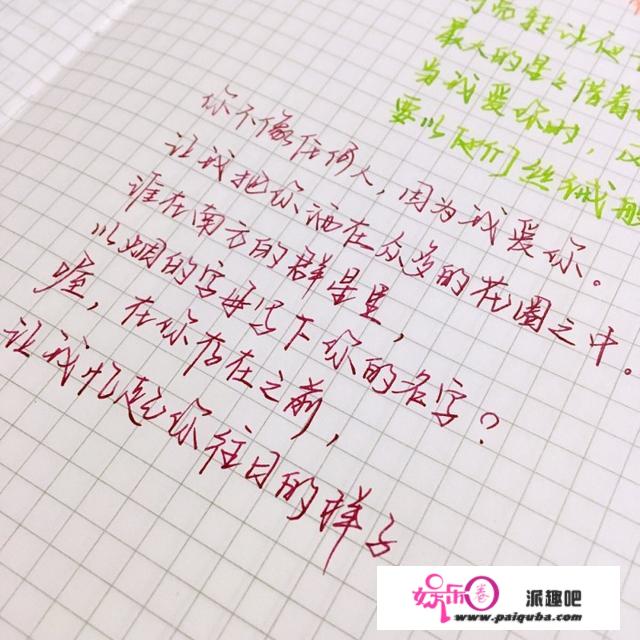 你不像任何人，因为我爱你。
让我把你洒在众多的花圈之中。
谁在南方的群星里，
以烟的字母写下你的名字？
喔，在你存在之前，
让我忆起你往日的样子
最大的是
当我爱你的，
要以
娱乐圈 派趣吧
www.paiquba.com